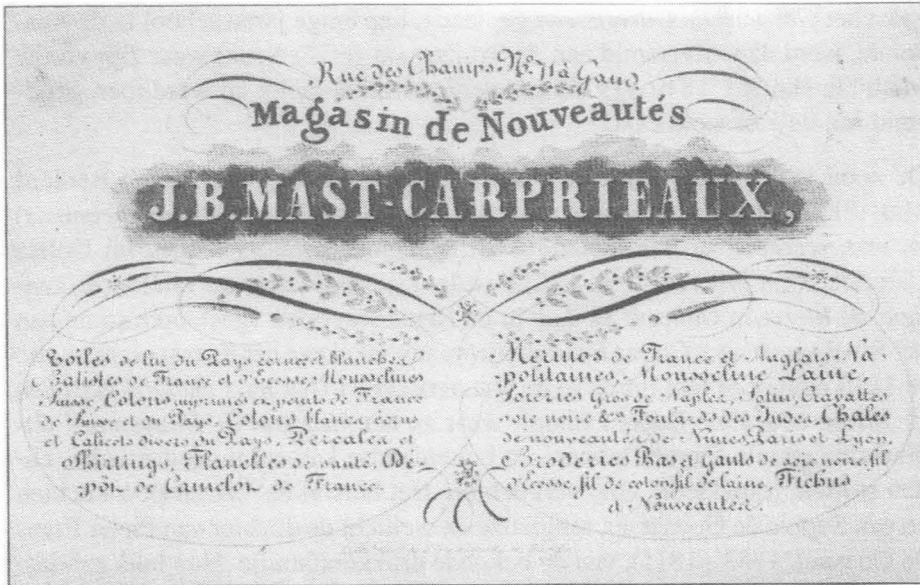 Rue des Champs, No. 71 à Gand
Magasin de Nouveautés
J.B. MAST-CARPRIEAUX,
Toiles de lin du Pays écrues et blanches,
Batistes de France et d'Ecosse, Mousselines
Suisse, Cotons imprimés et peints de France
de Suisse et du Pays, Cotons blancs, écrus
et Calicots divers du Pays, Percales et
Shirtings, Flanelles de santé. De-
pôt de Camelot de France.
Merinos de France et Anglais, Na-
politaines, Mousseline Laine,
Soieries Gros de Naples, Satin, Cravattes
soie noire &a Foulards des Indes, Châles
de nouveautés de Nimes, Paris et Lyon.
Broderies Bas et Gants de soie noire, fil
d'Ecosse, fil de coton, fil de laine, Fichus
et Nouveautés.